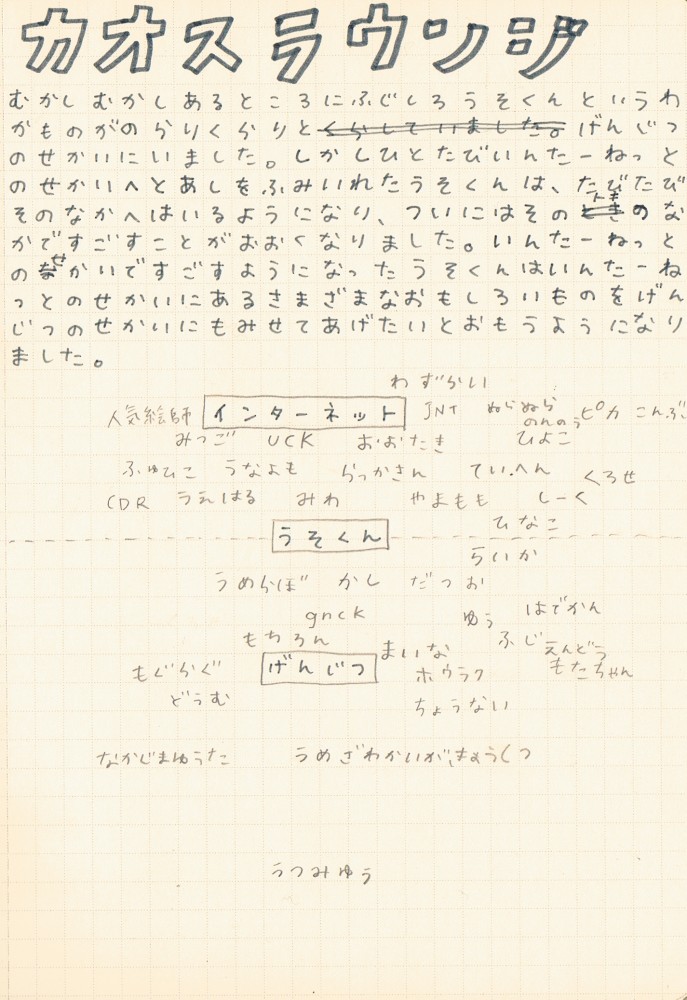 カオスラウンジ
むかしむかしあるところにふじしろうそくんというわ
かものがのらりくらりとくらしていました。げんじつ
のせかいにいました。しかしひとたびいんたーねっと
のせかいへとあしをふみいれたうそくんは、たびたび
そのなかへはいるようになり、ついにはそのときのな
かですごすことがおおくなりました。いんたーねっと
のせかいですごすようになったうそくんはいんたーね
っとのせかいにあるさまざまなおもしろいものをげん
じつのせかいにもみせてあげたいとおもうようになり
ました。
わずらい
人気絵師 インターネット JNT ぬらぬら ピカ こんぶ
のんのう
みつご UCK おおたき ひよこ
ふゅひこ うなよも らっかさん てい.へん くろせ
CDR うえはる みわ やまもも しーく
ひなこ
うそくん
らいか
うめらぼ かし だつお
gnck ゆう はでかん
もちろん まいな ふじ えんどう
もぐらぐ げんじつ ホウラク もたちゃん
どうむ ちょうない
なかじまゆうた うめざわかいが
うつみゆう